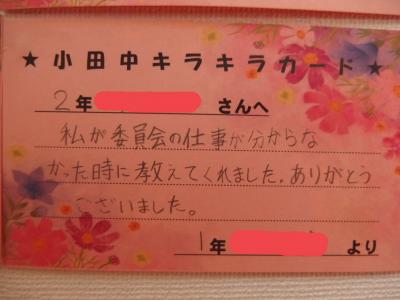 ★小田中キラキラカード★
2年 さんへ
私が委員会の仕事が分からな
かった時に教えてくれました。ありがとう
ございました。
1年 より